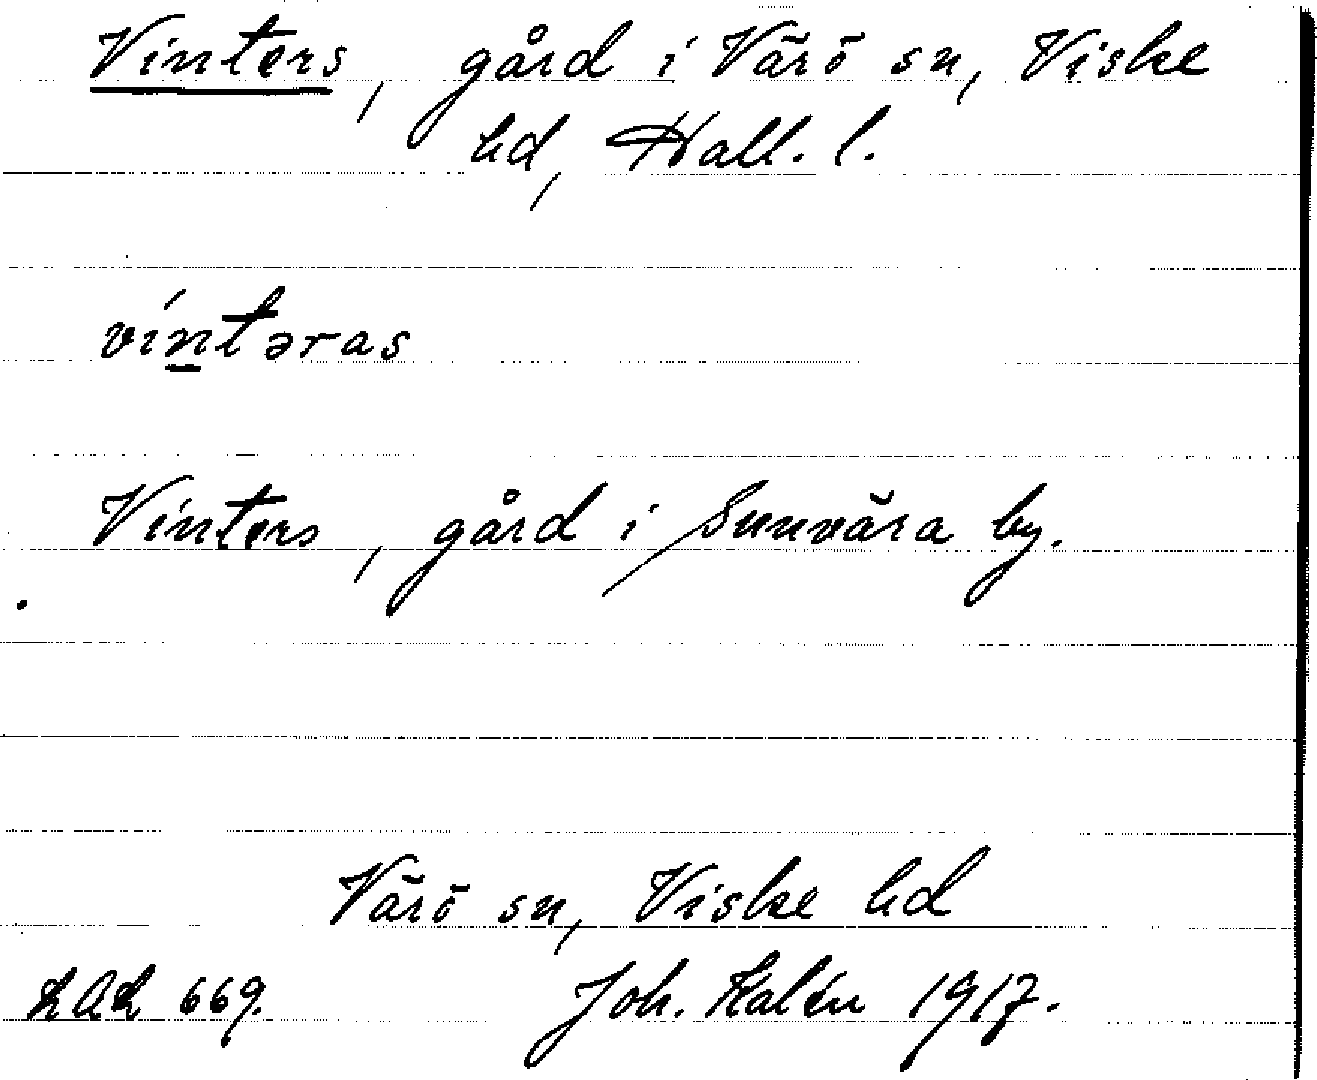 Vinters, gård i Värö sn, Viske
hd, Hall. l.
víṉtəras
Vinters, gård i Sunvära by.
Värö sn, Viske hd
LAL 669. Joh. Kalén 1917.